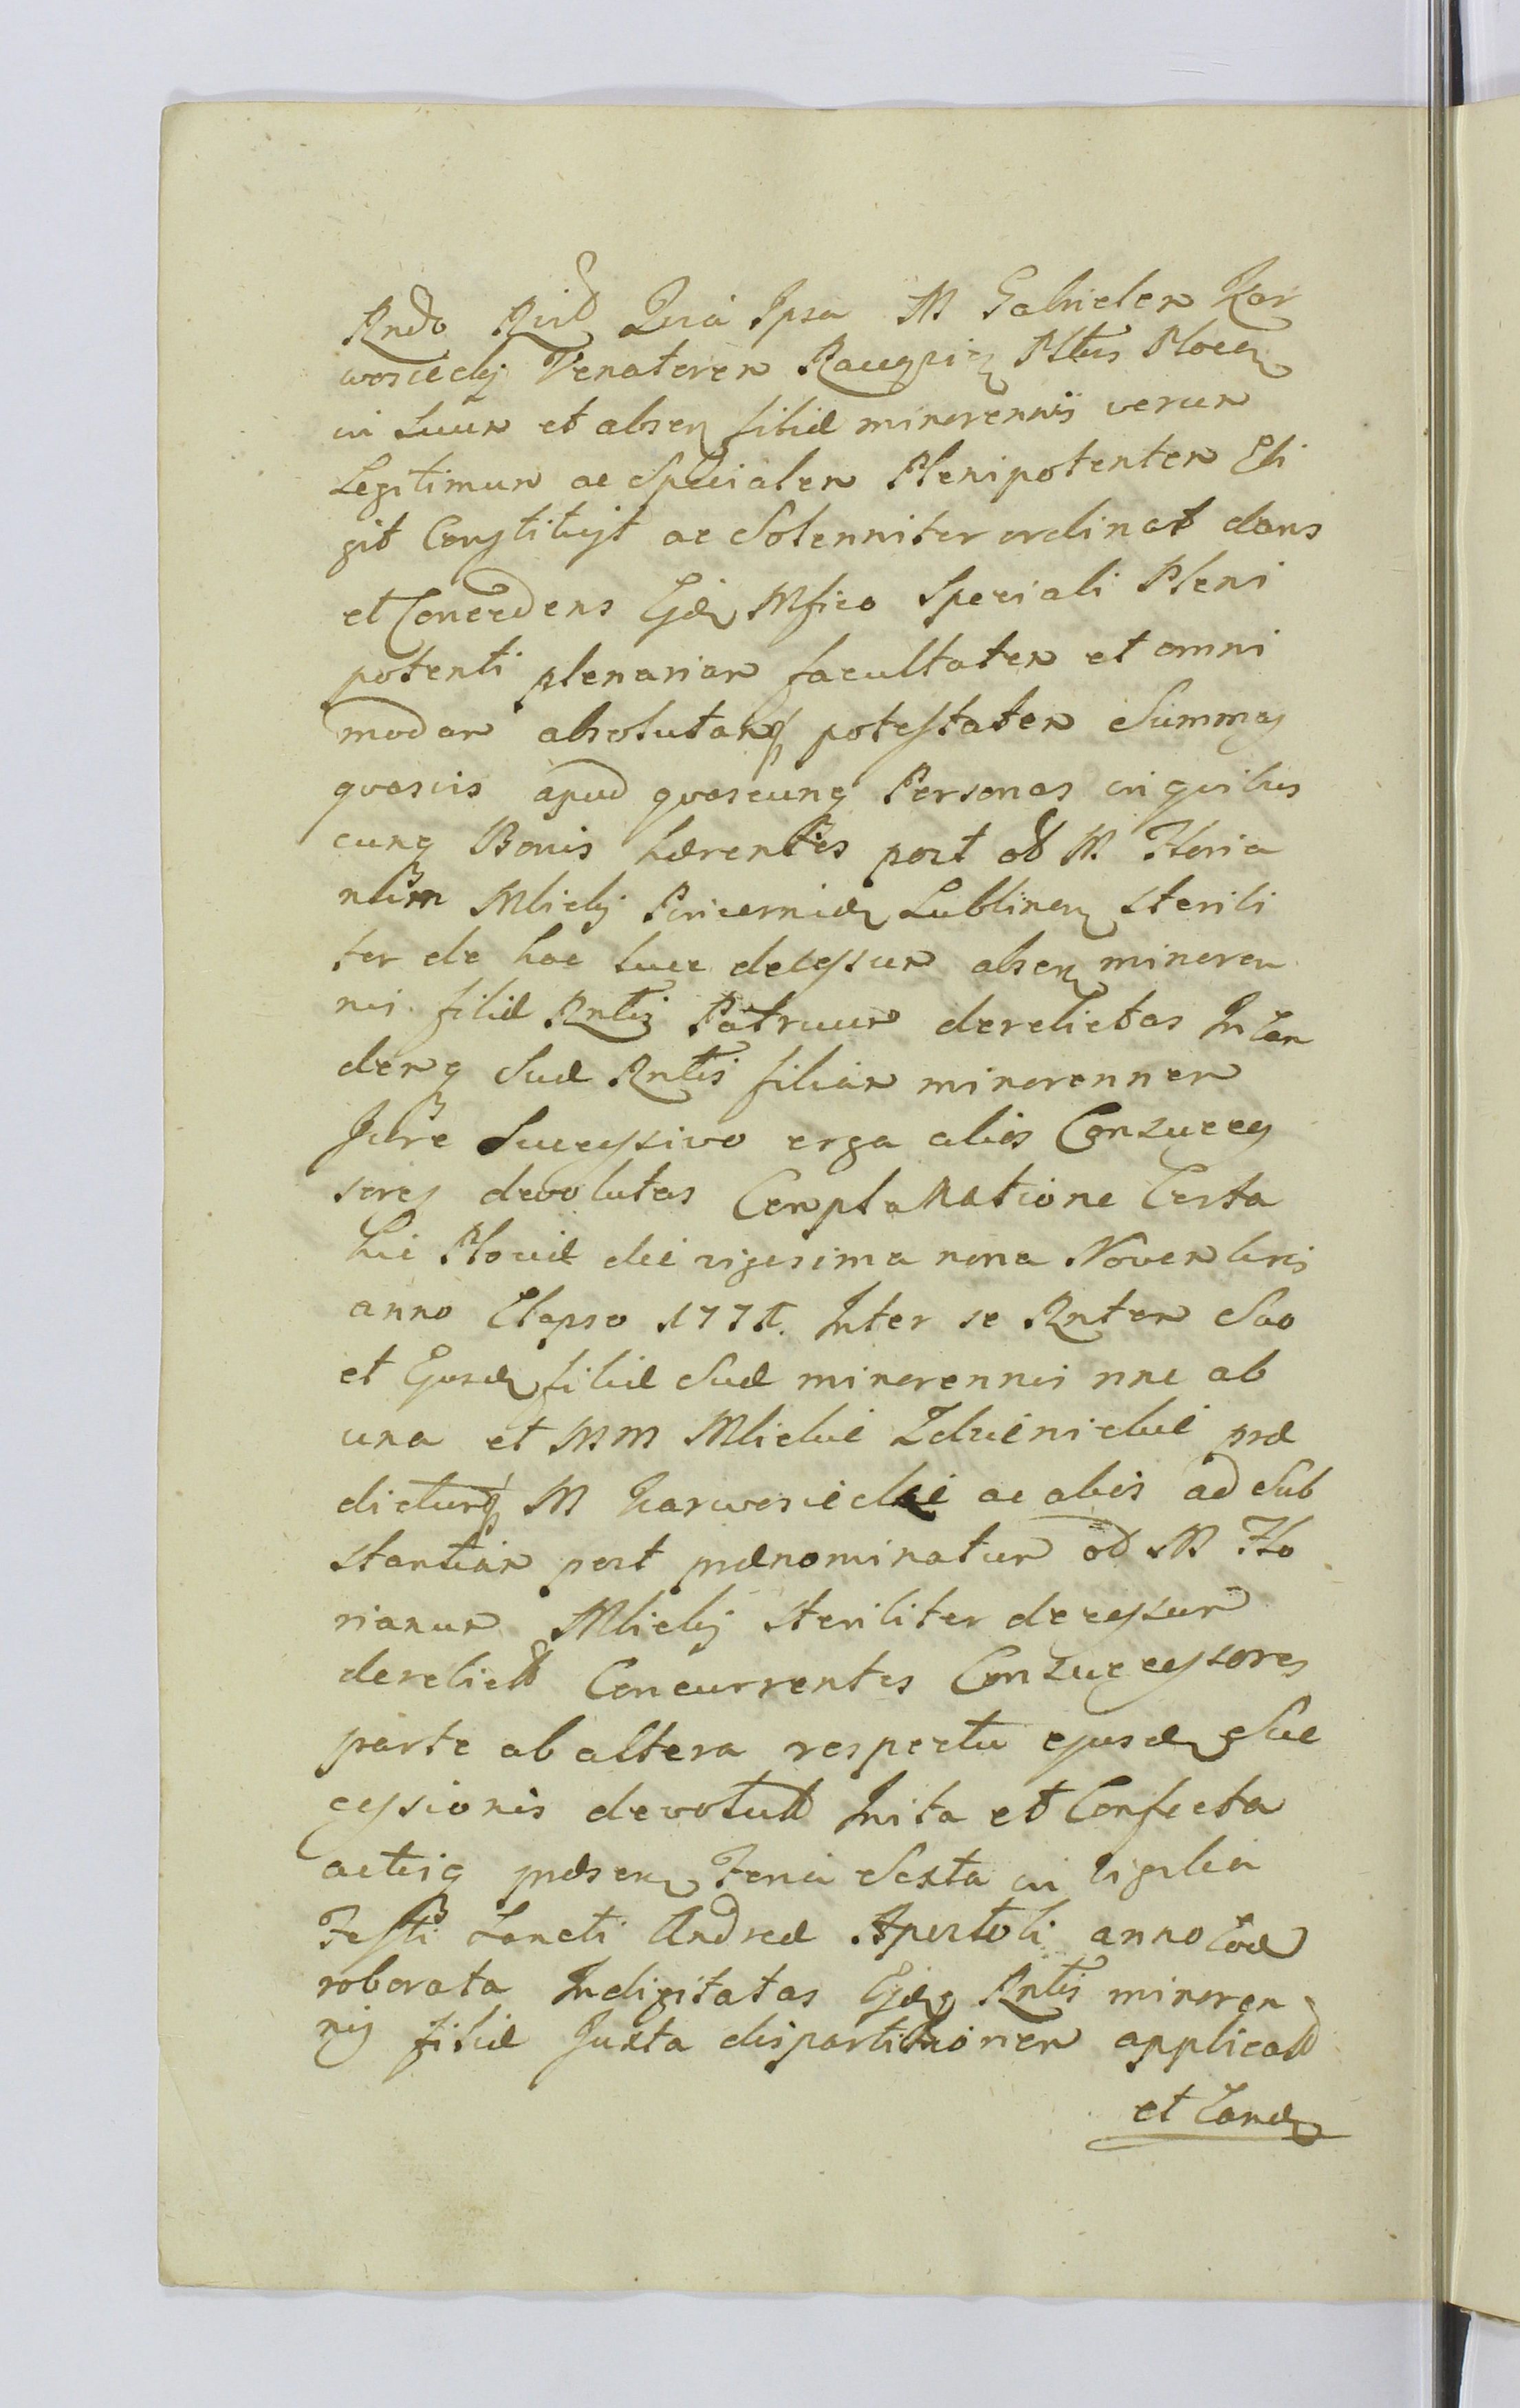 Rndo Quia Ipsa M Gabrielem Kar
wosiecky Venatorem Racząż Pltus Plocen
in suum et absen filiæ minorennis verum
Legitimum ac Specialem Plenipotentem Eli
git Constituyt ac Solenniter ordinat dans
et Concedens Ejd Mfico Speciali Pleni
potenti plenariam facultatem et omni
modam absolutamq potestatem Summas
quasvis apud quascunq Personas in quibus
cunq Bonis hærentes post od M. Floria
num Mlicky Pincernid Lublinen sterili
ter de hac luce decessum absen minoren
nis filiæ Rntis Patruum derelictas In Ean
demq Suæ Rntis filiam minorennem
Jure Successivo erga alios Consucces
sores devolutas Complanatione Certa
hic Plociæ die vigesima nona Novembris
anno Elapso 177 Inter se Rntem Suo
et Ejusd filiæ Suæ minorennis nne ab
una et MM Mlickie Zdzienickie præ
dictumq M Karwosieckie ac alios ad Sub
stantiam post prænominatum od M Flo
rianum Mlicky steriliter decessum
derelictt Concurrentes Consuccessores
parte ab altera respectu ejusd Suc
cessionis devolutt Inita et Confecta
actisq præsen Feria Sexta in vigilia
Festi Sancti Andreæ Apostoli anno Eod
roborata Indigitatas Ejdq Rntis minoren
nis filiæ Juxta dispartitionem applicatt
et Eand